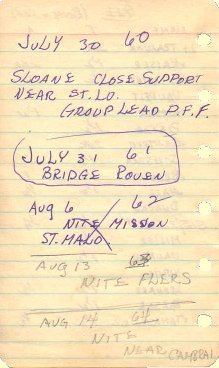 JULY 30 60
SLOANE CLOSE SUPPORT
NEAR ST. LO.
GROUP LEAD P.F.F.
JULY 31 61
BRIDGE ROUEN
AUG 6 62
NITE MISSION
ST. MALO.
AUG 13 63
NITE FLERS
AUG 14 64
NITE
NEAR CAMBRAI